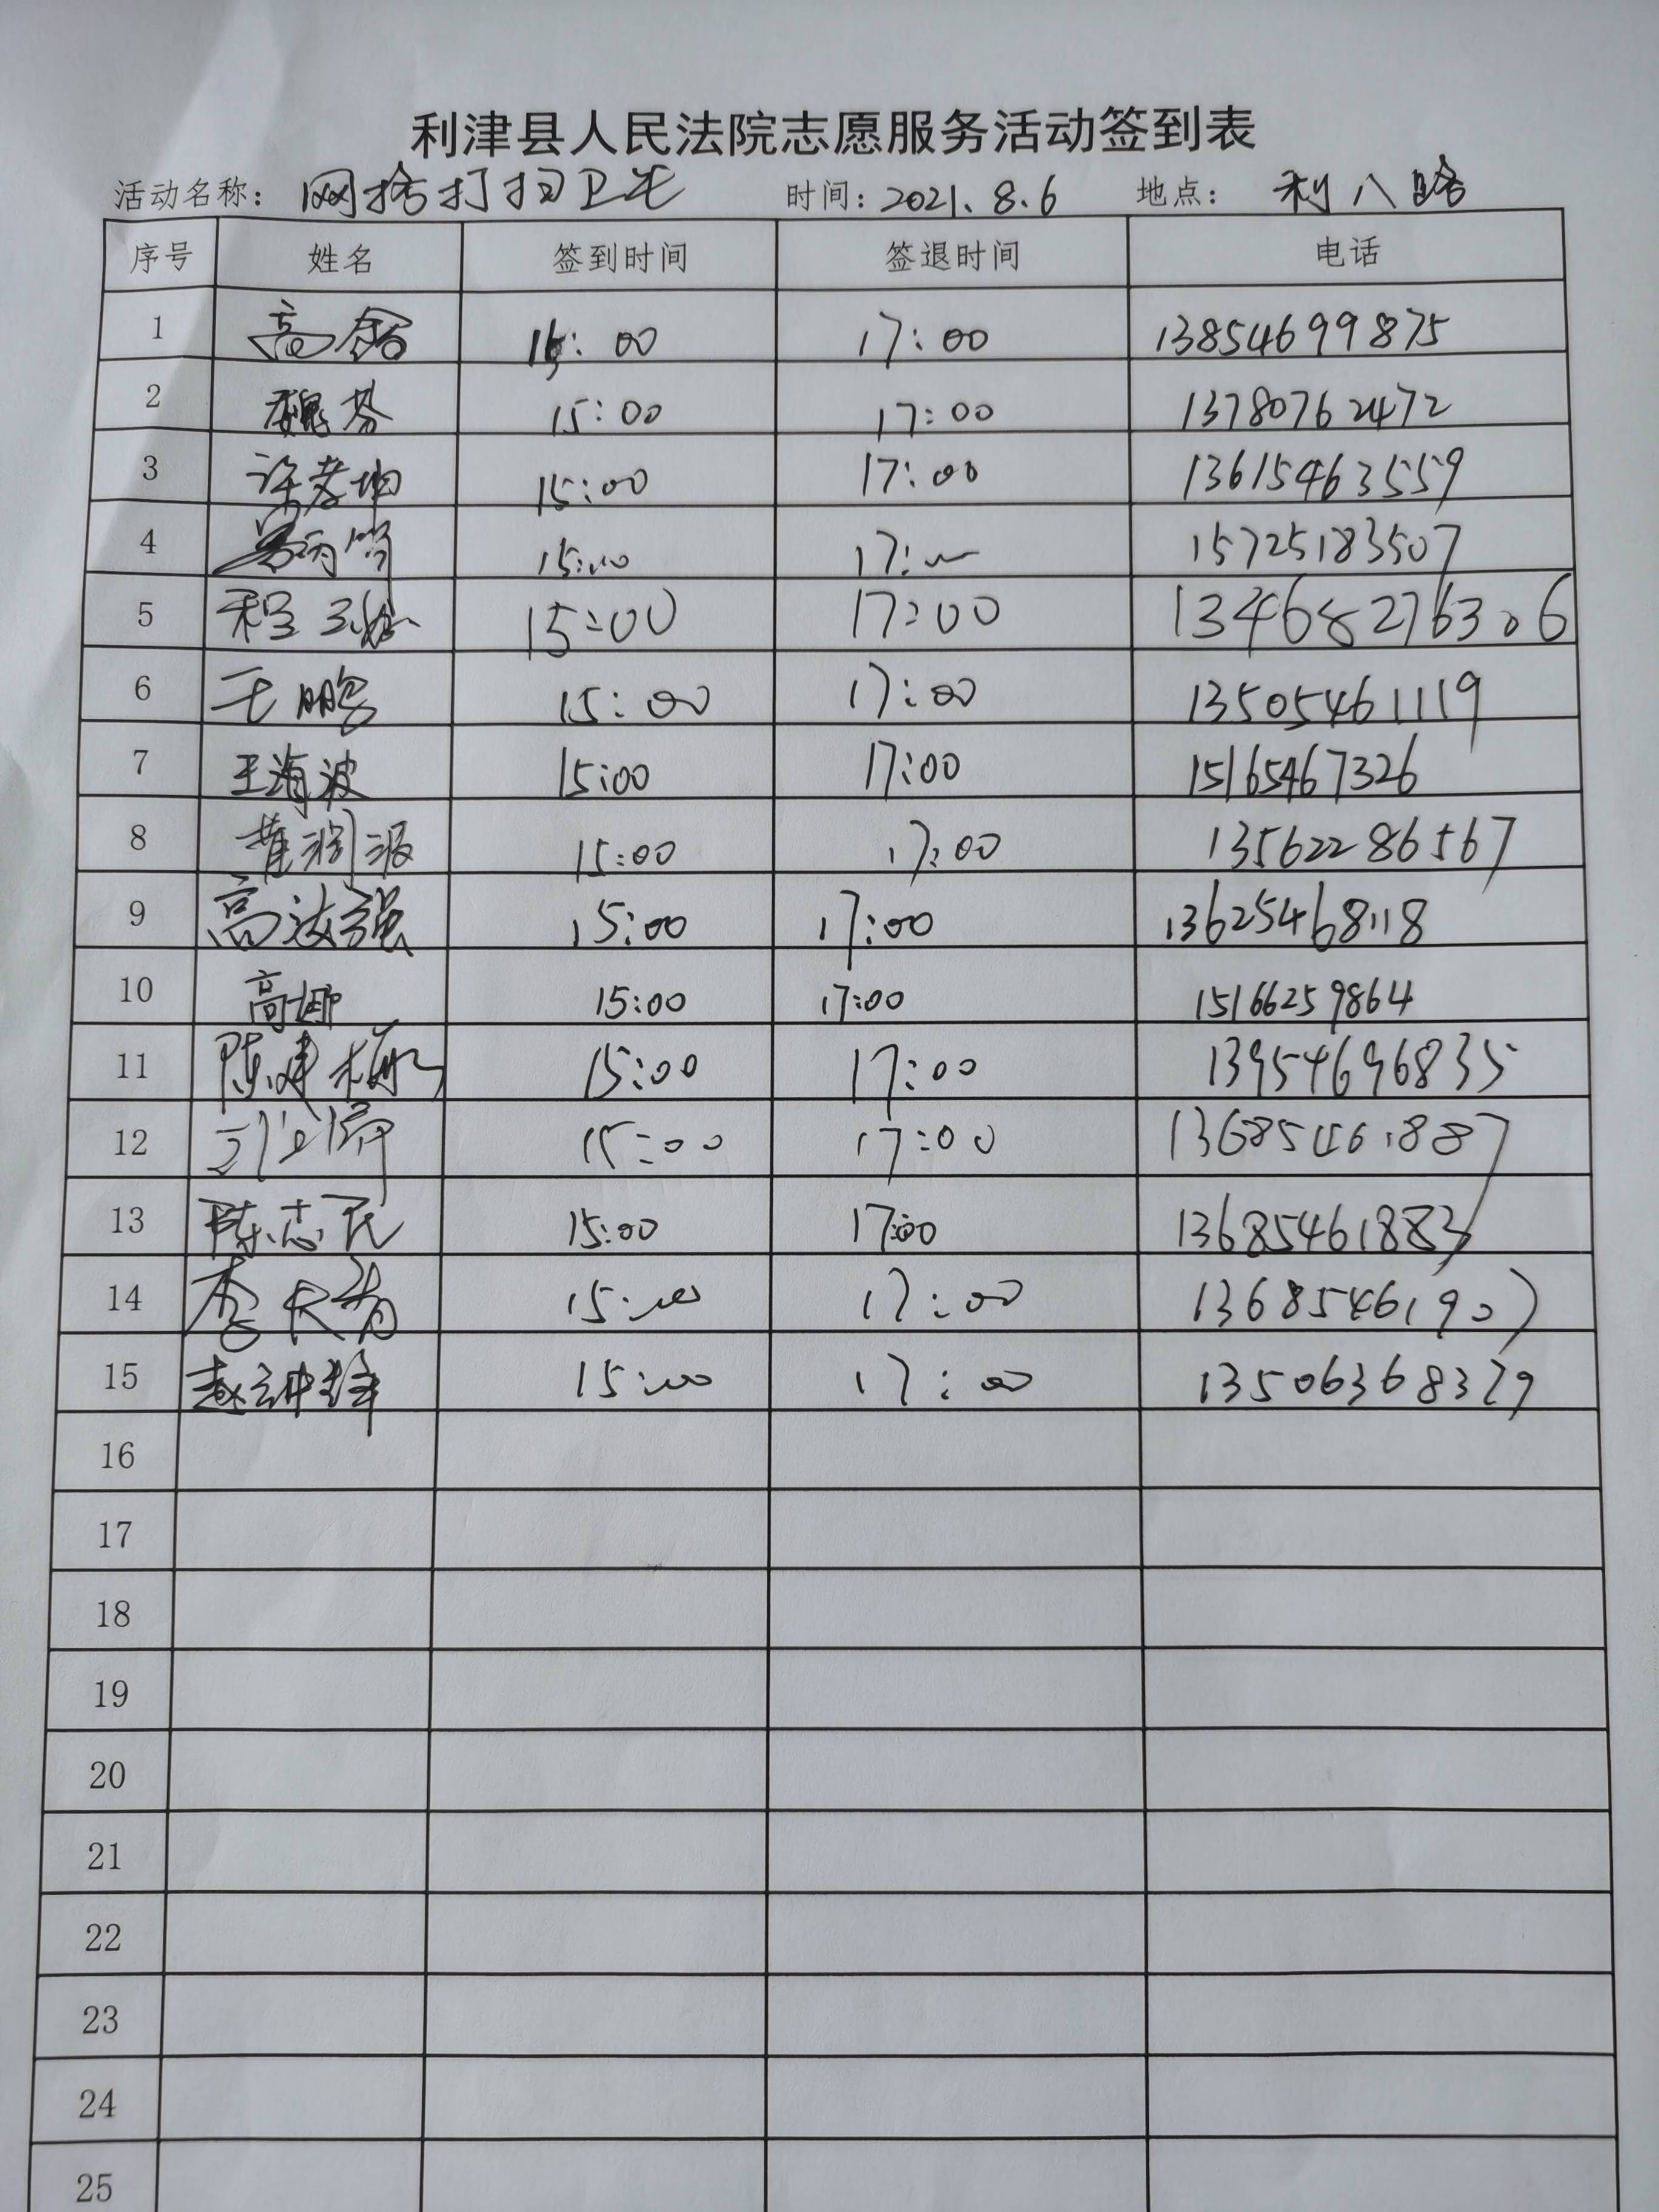 利津县人民法院志愿服务活动签到表
活动名称： 网格打扫卫生 时间：2021.8.6 地点： 利八路
序号 姓名 签到时间 签退时间 电话
1 高鑫 15:00 17:00 13854699875
2 魏芬 15:00 17:00 13780762472
3 许孝坤 15:00 17:00 13615463559
4 15:00 17:00 15725183507
5 程 15:00 17:00 13468276306
6 王鹏 15:00 17:00 13505461119
7 王海波 15:00 17:00 15165467326
8 15:00 17:00 13562286567
9 高法强 15:00 17:00 13625468118
10 高娜 15:00 17:00 15166259864
11 陈建梅 15:00 17:00 13954696835
12 15:00 17:00 13685461887
13 陈志民 15:00 17:00 13685461883
14 李 15:00 17:00 13685461907
15 赵 15:00 17:00 13506368379
16
17
18
19
20
21
22
23
24
25